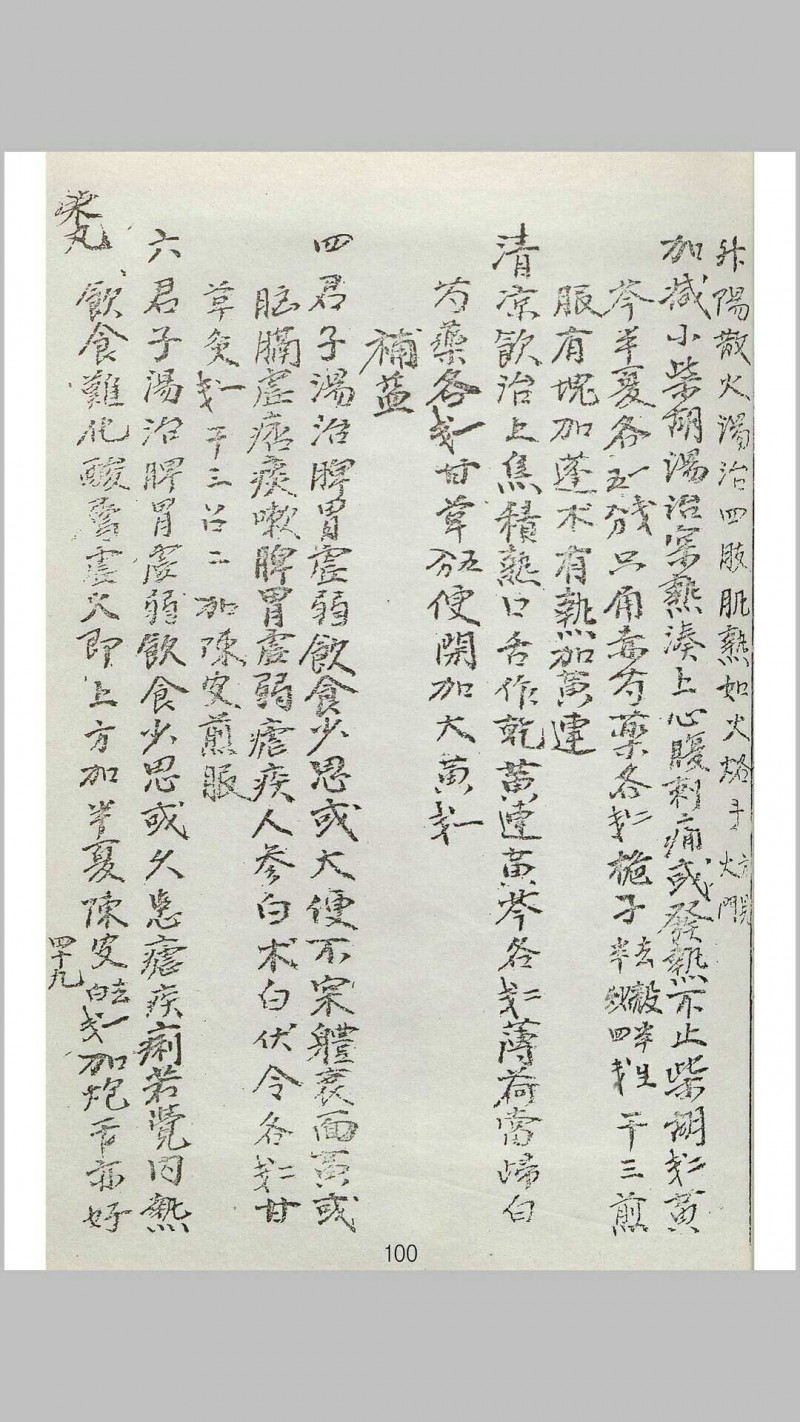 升陽散火湯治四肢肌熱如火烙手 方見火門
加减小柴胡湯治寒熱湊上心腹刺痛或發熱不止柴胡戈二黃
芩半夏各五一分戈只角赤芍藥各戈二梔子去殼半生半炒四戈干三煎
服有塊加蓬朮有熱加黃連
清凉飲治上焦積熱口舌作乾黃連黃芩各戈二薄荷當歸白
芍藥各戈一甘草五分便閉加大黃戈一
補益
四君子湯治脾胃虛弱飲食少思或大便不宲軆衰面黃或
胸膈虛痞痰嗽脾胃虛弱瘧疾人參白术白伏令各戈二甘
草灸戈一干三召二加陳皮煎服
六君子湯治脾胃虛弱飲食少思或久患瘧疾痢若覺內熱
飲食難化酸虛火即上方加半夏陳皮去白戈一加炮干亦好
丸
四十九
100